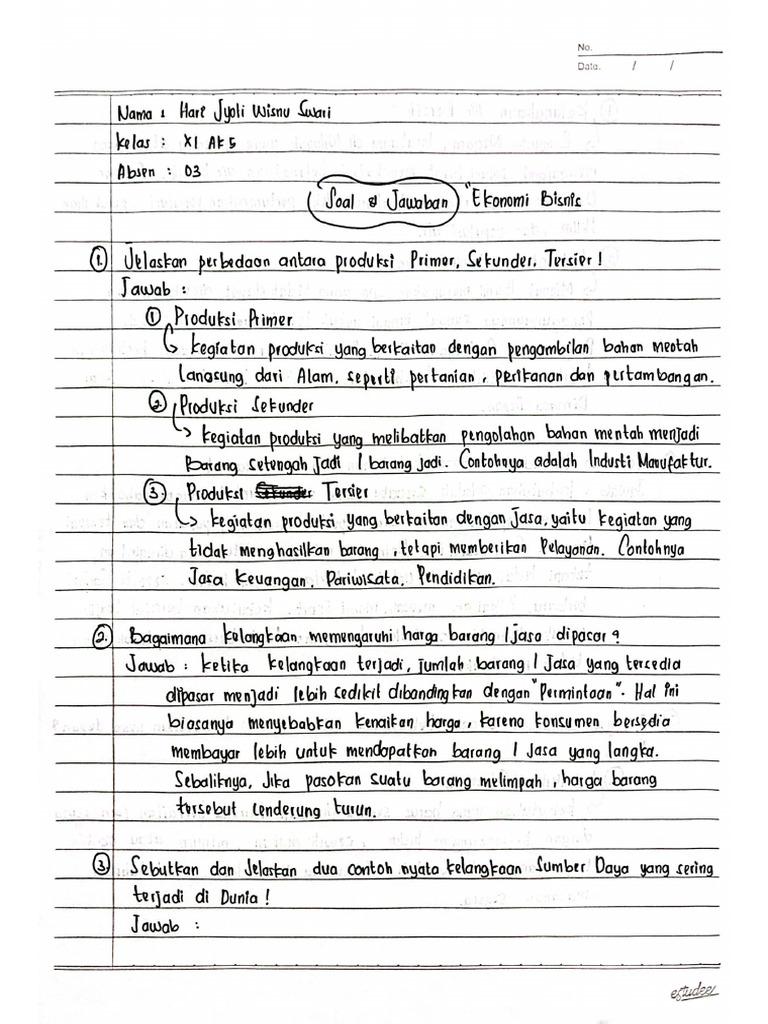 No.
Date. / /
Nama : Hari Jyoti Wisnu Swari
Kelas : XI AK 5
Absen : 03
Soal & Jawaban "Ekonomi Bisnis
1. Jelaskan perbedaan antara produksi Primer, Sekunder, Tersier !
Jawab :
1 Produksi Primer
↳ kegiatan produksi yang berkaitan dengan pengambilan bahan mentah
langsung dari Alam, seperti pertanian, perikanan dan pertambangan.
2 Produksi Sekunder
↳ kegiatan produksi yang melibatkan pengolahan bahan mentah menjadi
Barang setengah jadi / barang jadi. Contohnya adalah Industi Manufaktur.
3. Produksi Tersier
↳ kegiatan produksi yang berkaitan dengan Jasa, yaitu kegiatan yang
tidak menghasilkan barang, tetapi memberikan Pelayanan. Contohnya
Jasa Keuangan, Pariwisata, Pendidikan.
2. Bagaimana kelangkaan memengaruhi harga barang / jasa dipasar ?
Jawab : ketika kelangkaan terjadi, jumlah barang / Jasa yang tersedia
dipasar menjadi lebih sedikit dibandingkan dengan "Permintaan". Hal ini
biasanya menyebabkan kenaikan harga, karena konsumen bersedia
membayar lebih untuk mendapatkan barang / Jasa yang langka.
Sebaliknya, Jika pasokan suatu barang melimpah, harga barang
tersebut cenderung turun.
3. Sebutkan dan Jelaskan dua contoh nyata kelangkaan Sumber Daya yang sering
terjadi di Dunia !
Jawab :
estudee